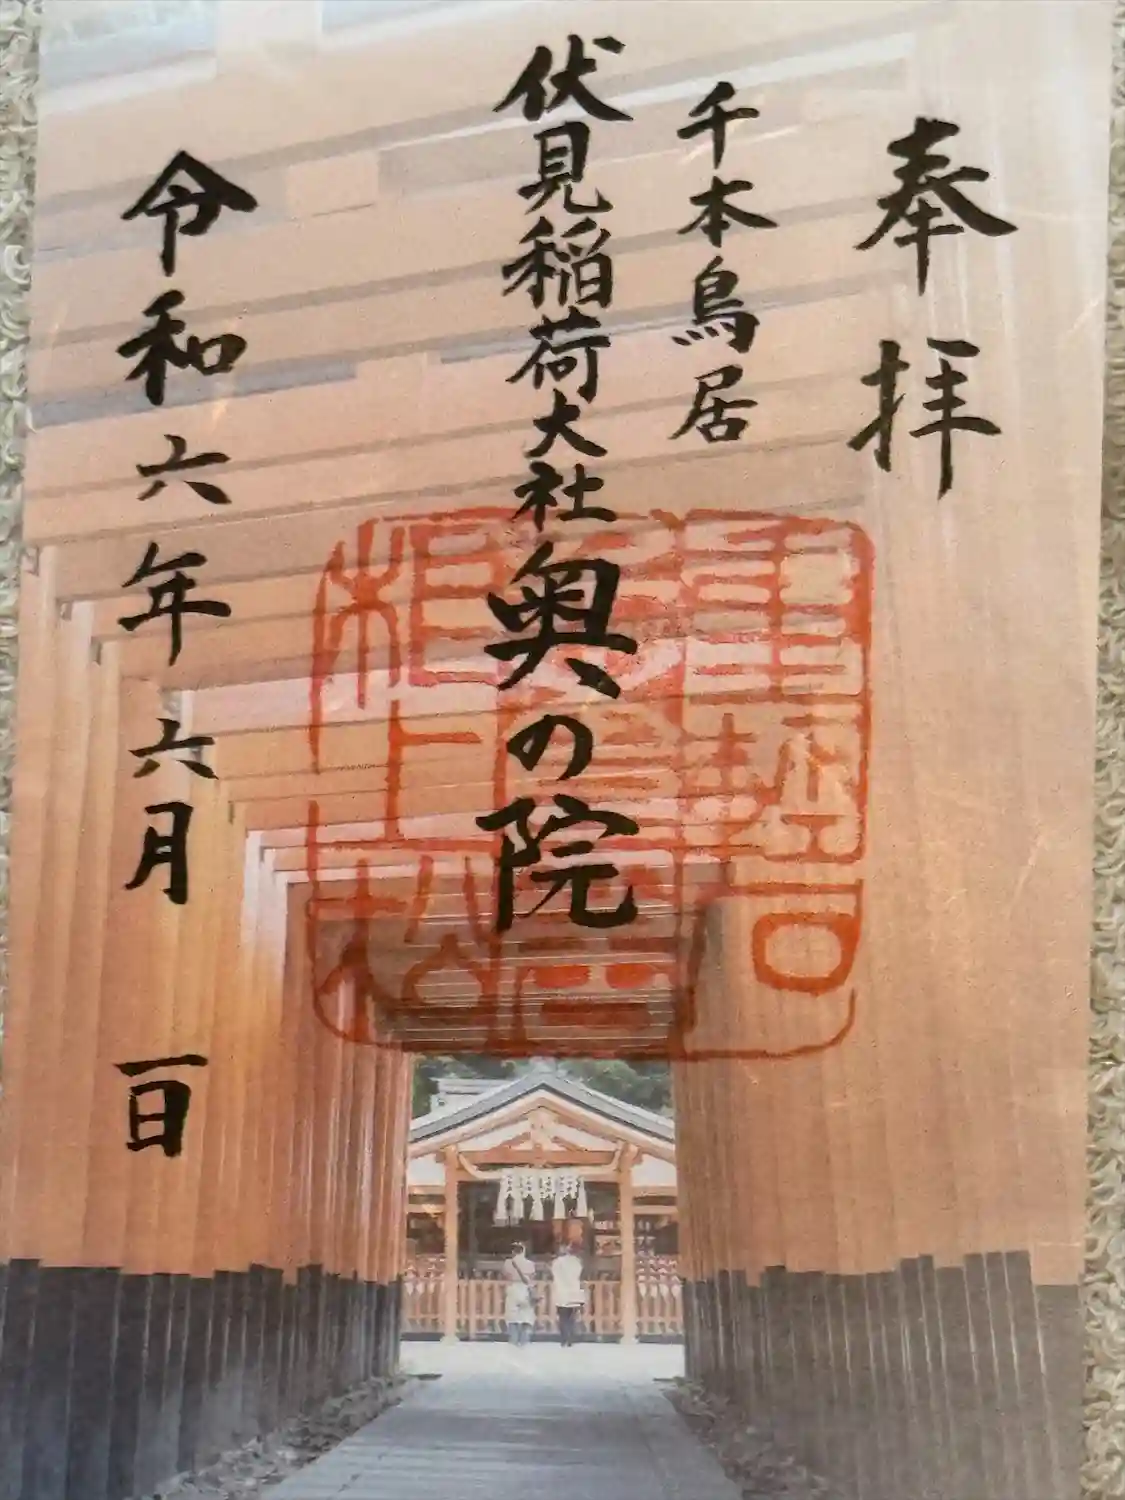 奉拝
千本鳥居
伏見稲荷大社奥の院
令和六年六月一日